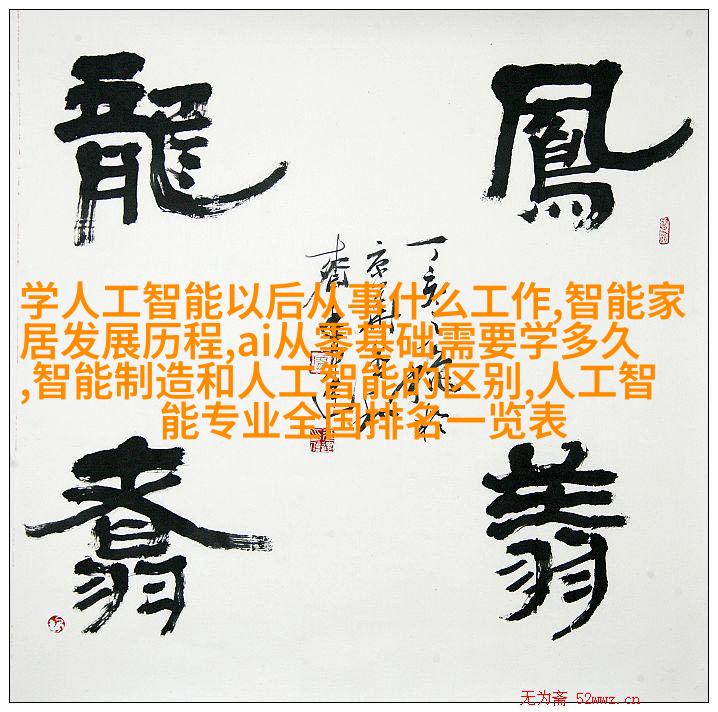 鳳翔
龍翥
丁亥
学人工智能以后从事什么工作,智能家
居发展历程,ai从零基础需要学多久
,智能制造和人工智能的区别,人工智
能专业全国排名一览表
无为斋 52wwz.cn